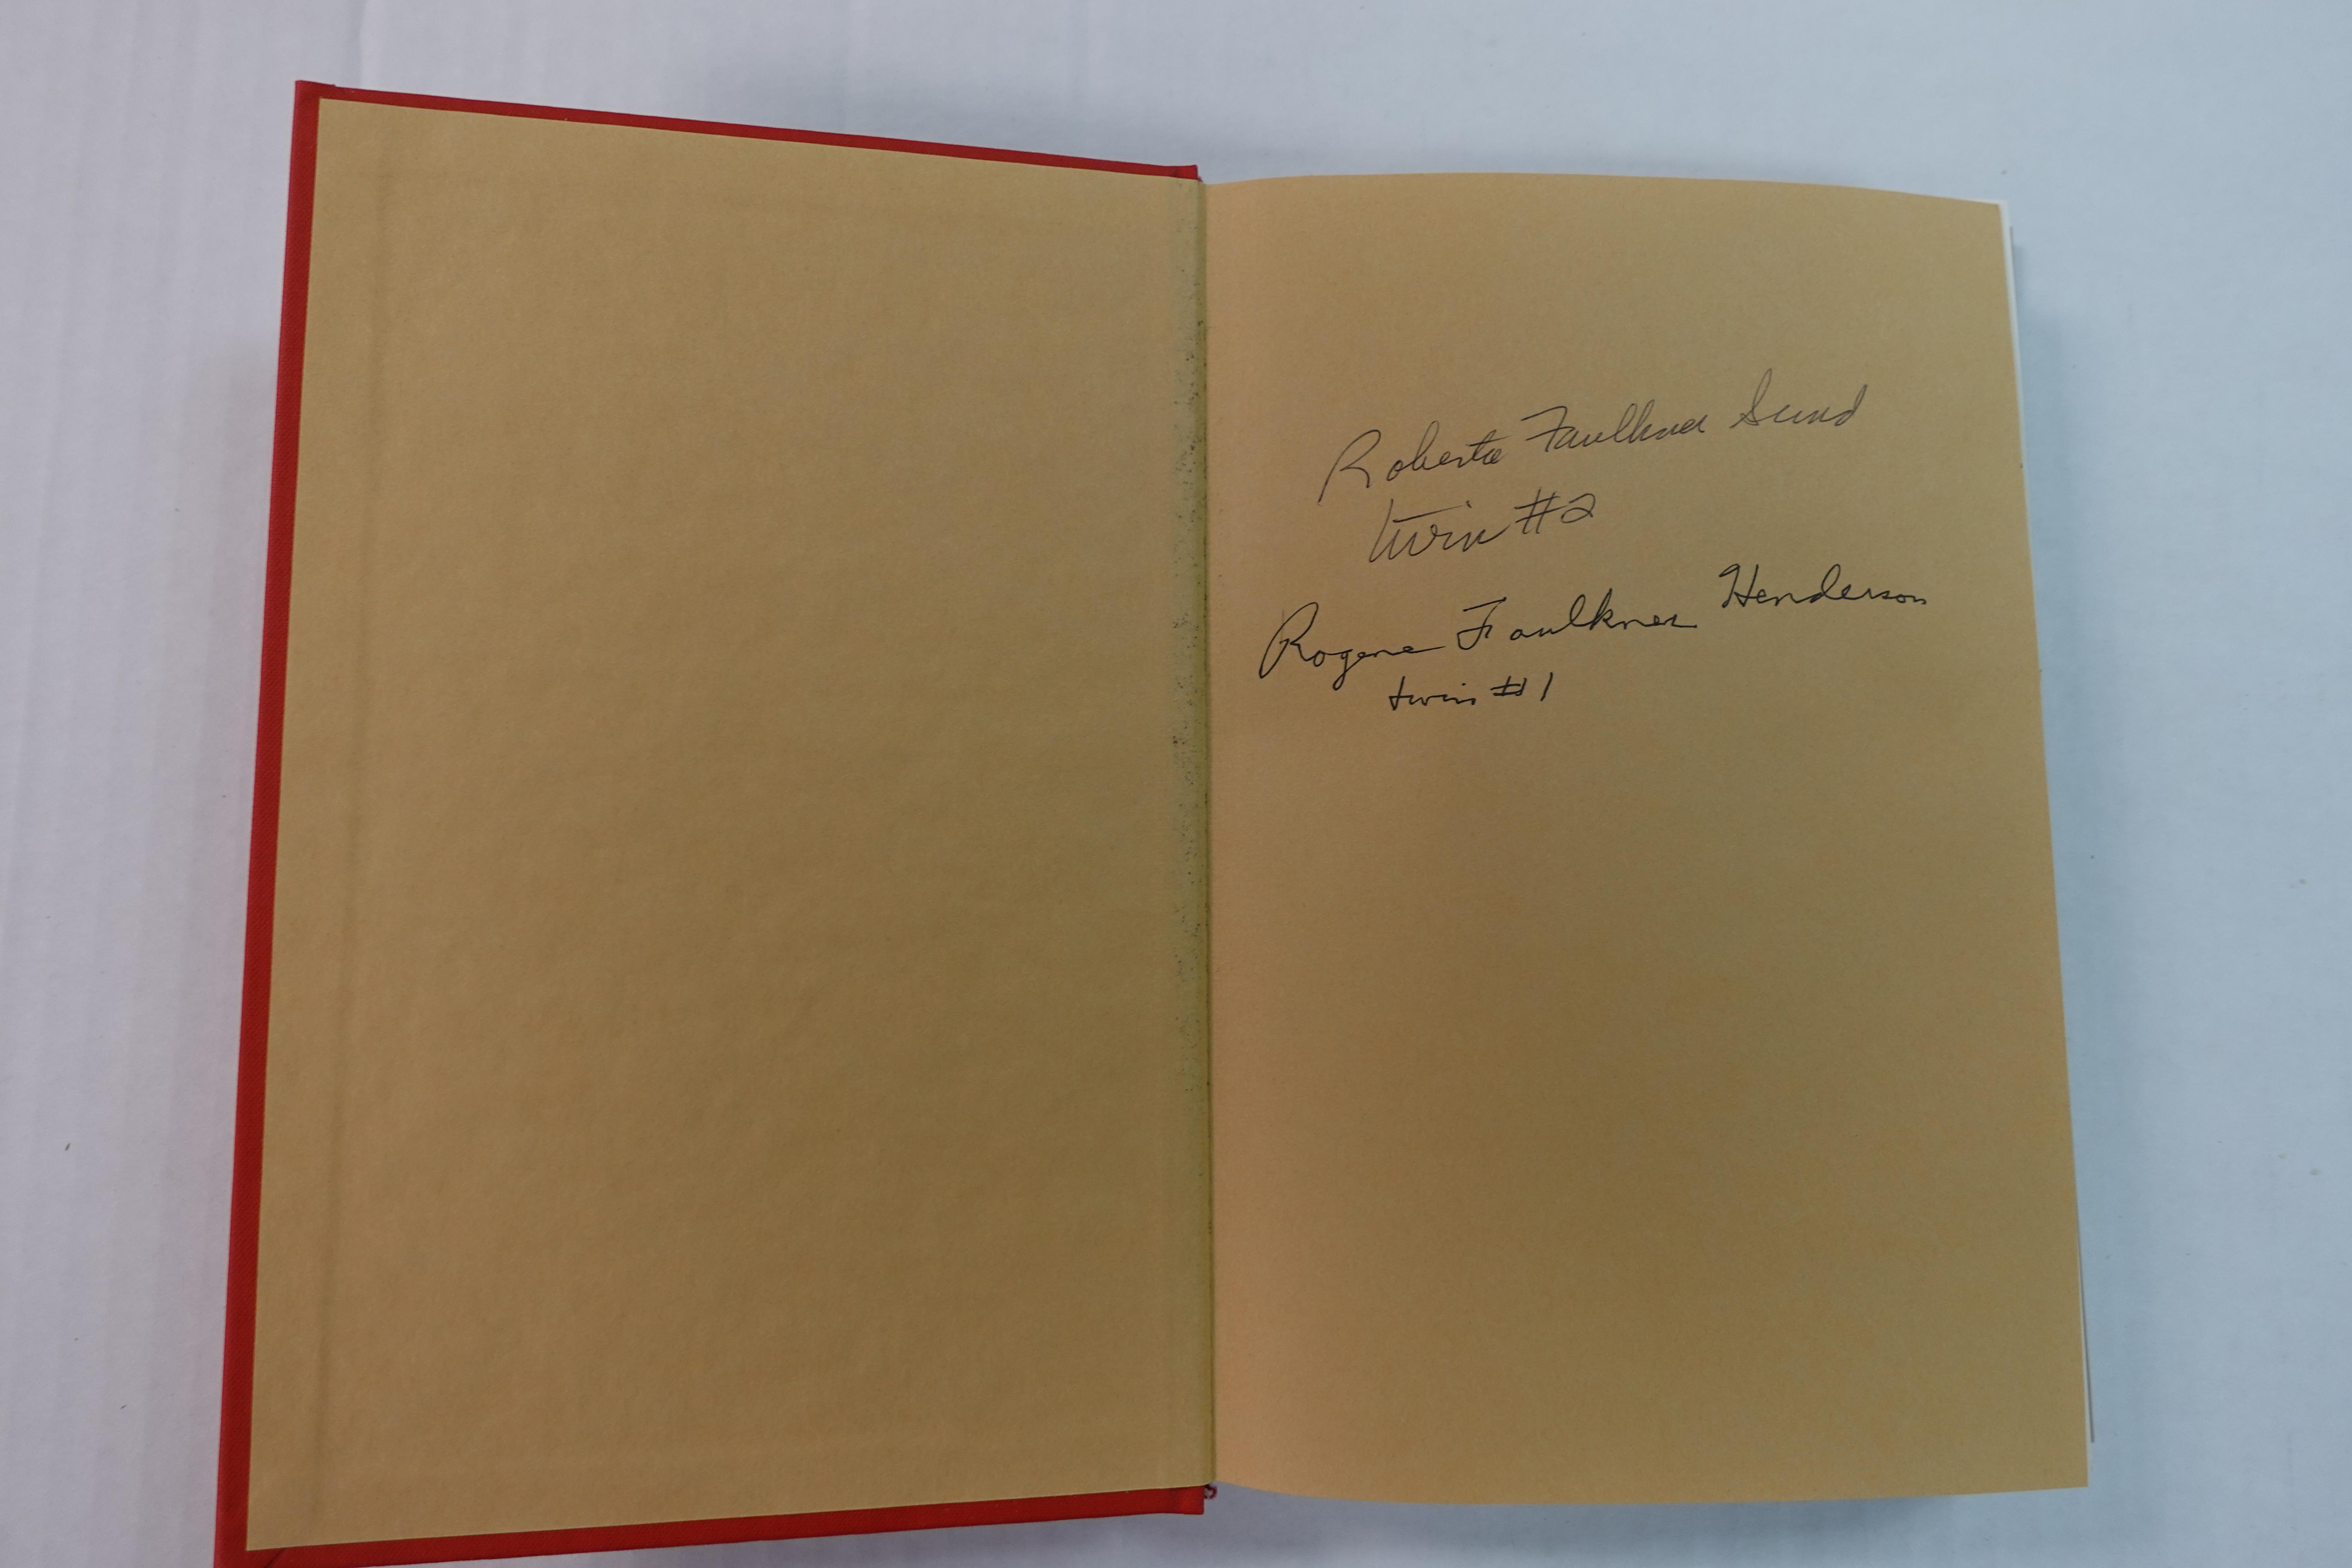 Roberta Faulkner Sund
twin #2
Rogene Faulkner Henderson
twin #1